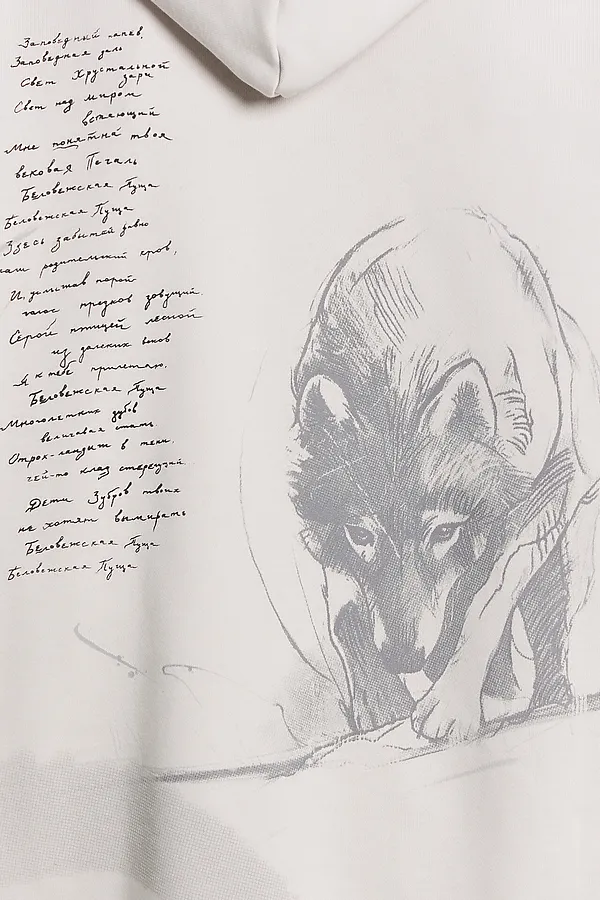 Заповедный напев,
Заповедная даль
Свет Хрустальной
зари
Свет над миром
встающий
Мне понятна твоя
вековая Печаль
Беловежская Пуща
Беловежская Пуща
Здесь забытый давно
наш родительский кров,
И, услыхав порой
голос предков зовущий.
Серой птицей лесной
из далеких веков
Я к тебе прилетаю,
Беловежская Пуща
Многолетних дубов
величавая стать.
Отрок-ландыш в тени,
чей-то клад стерегущий
Дети Зубров твоих
не хотят вымирать
Беловежская Пуща
Беловежская Пуща